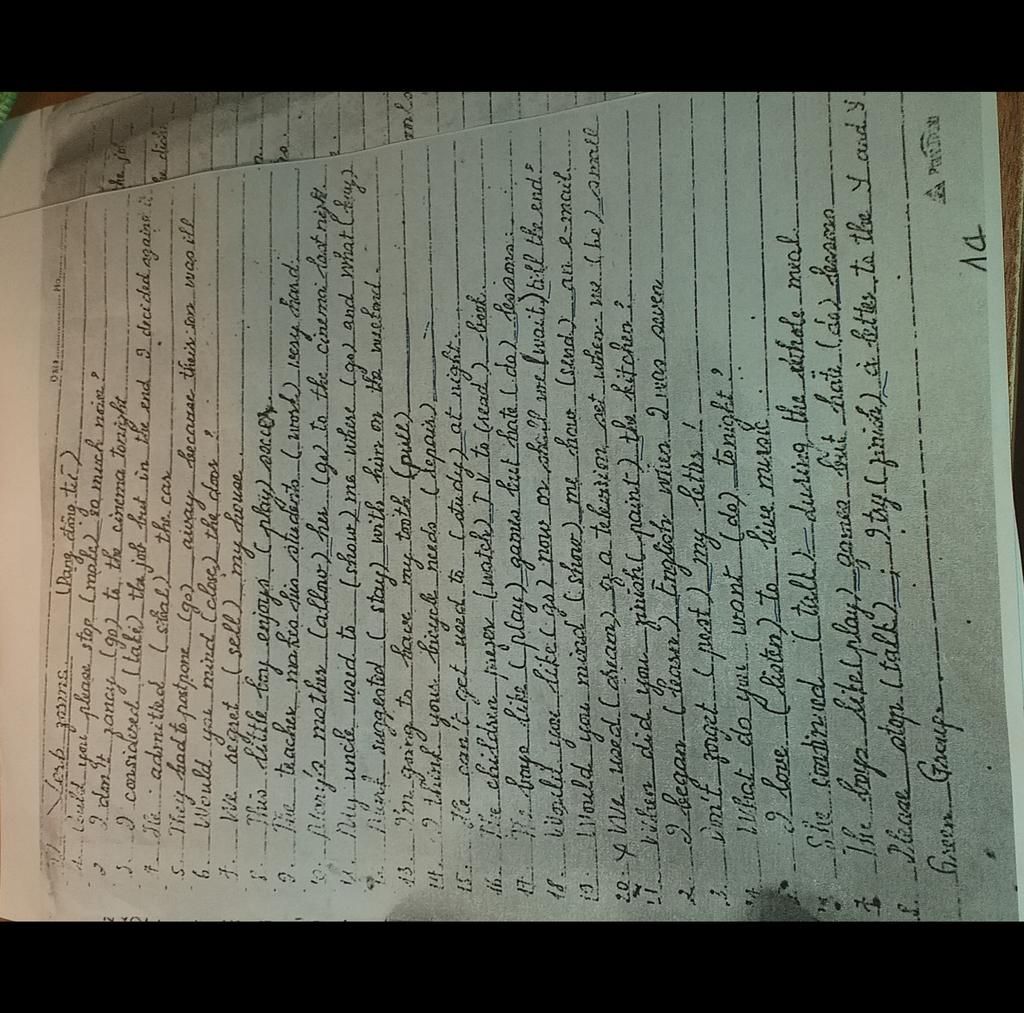 Verb forms. (Dạng động từ)
1. Could you please stop (make) so much noise?
2 I don't fancy (go) to the cinema tonight
3. I considered (take) the job but in the end I decided against
4. He admitted (steal) the car
5. They had to postpone (go) away because their son was ill
6. Would you mind (close) the door?
7. We regret (sell) my house.
8. This little boy enjoys (play) soccer.
9. The teacher makes his students (work) very hard.
10. Mary's mother (allow) her (go) to the cinema last night
11. My uncle used to (show) me where (go) and what (buy)
12. suggested (stay) with him on the weekend.
13. I'm going to have my tooth (pull)
14. I think your bicycle needs (repair)
15. He can't get used to (study) at night.
16. The children prefer (watch) TV to (read) book.
17. The boys like (play) games but hate (do) lessons.
18. Would you like (go) now or shall we (wait) till the end?
19. Would you mind (show) me how (send) an e-mail
20. We used (dream) of a television set when we (be) small
1. When did you finish (paint) the kitchen?
2. I began (learn) English when I was seven
3. Don't forget (post) my letter!
4. What do you want (do) tonight?
I love (listen) to live music.
She continued (talk) during the whole meal
7. The boys like (play) games but hate (do) lesson
8. Please stop (talk); I try (finish) a letter
Green Group.
1A